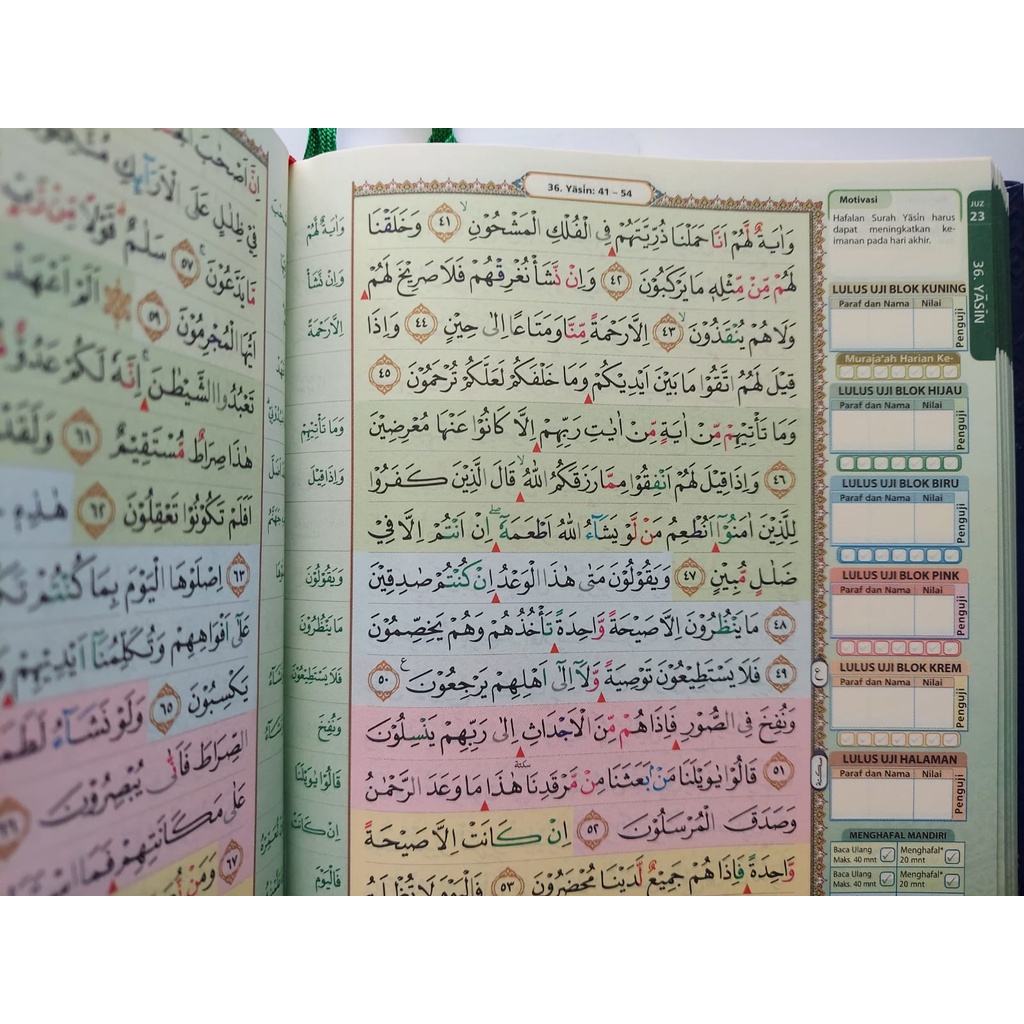 36. Yāsin: 41 – 54
وَاٰيَةٌ لَّهُمْ اَنَّا حَمَلْنَا ذُرِّيَّتَهُمْ فِى الْفُلْكِ الْمَشْحُوْنِ ۙ ٤١ وَخَلَقْنَا
لَهُمْ مِّنْ مِّثْلِهٖ مَا يَرْكَبُوْنَ ٤٢ وَاِنْ نَّشَأْ نُغْرِقْهُمْ فَلَا صَرِيْخَ لَهُمْ
وَلَا هُمْ يُنْقَذُوْنَ ۙ ٤٣ اِلَّا رَحْمَةً مِّنَّا وَمَتَاعًا اِلٰى حِيْنٍ ٤٤ وَاِذَا
قِيْلَ لَهُمُ اتَّقُوْا مَا بَيْنَ اَيْدِيْكُمْ وَمَا خَلْفَكُمْ لَعَلَّكُمْ تُرْحَمُوْنَ ٤٥
وَمَا تَأْتِيْهِمْ مِّنْ اٰيَةٍ مِّنْ اٰيٰتِ رَبِّهِمْ اِلَّا كَانُوْا عَنْهَا مُعْرِضِيْنَ
٤٦ وَاِذَا قِيْلَ لَهُمْ اَنْفِقُوْا مِمَّا رَزَقَكُمُ اللّٰهُ ۙ قَالَ الَّذِيْنَ كَفَرُوْا
لِلَّذِيْنَ اٰمَنُوْٓا اَنُطْعِمُ مَنْ لَّوْ يَشَاۤءُ اللّٰهُ اَطْعَمَهٗٓ ۖ اِنْ اَنْتُمْ اِلَّا فِيْ
ضَلٰلٍ مُّبِيْنٍ ٤٧ وَيَقُوْلُوْنَ مَتٰى هٰذَا الْوَعْدُ اِنْ كُنْتُمْ صٰدِقِيْنَ
٤٨ مَا يَنْظُرُوْنَ اِلَّا صَيْحَةً وَّاحِدَةً تَأْخُذُهُمْ وَهُمْ يَخِصِّمُوْنَ
٤٩ فَلَا يَسْتَطِيْعُوْنَ تَوْصِيَةً وَّلَآ اِلٰٓى اَهْلِهِمْ يَرْجِعُوْنَ ࣖ ٥٠
وَنُفِخَ فِى الصُّوْرِ فَاِذَا هُمْ مِّنَ الْاَجْدَاثِ اِلٰى رَبِّهِمْ يَنْسِلُوْنَ
٥١ قَالُوْا يٰوَيْلَنَا مَنْۢ بَعَثَنَا مِنْ مَّرْقَدِنَا سكتة هٰذَا مَا وَعَدَ الرَّحْمٰنُ
وَصَدَقَ الْمُرْسَلُوْنَ ٥٢ اِنْ كَانَتْ اِلَّا صَيْحَةً
وَّاحِدَةً فَاِذَا هُمْ جَمِيْعٌ لَّدَيْنَا مُحْضَرُوْنَ ٥٣ فَالْيَوْمَ لَا تُظْلَمُ
وَاٰيَةٌ لَّهُمْ
وَاِنْ نَّشَأْ
اِلَّا رَحْمَةً
وَمَا تَأْتِيْهِمْ
وَاِذَا قِيْلَ
وَيَقُوْلُوْنَ
مَا يَنْظُرُوْنَ
فَلَا يَسْتَطِيْعُوْنَ
وَنُفِخَ
قَالُوْا يٰوَيْلَنَا
اِنْ كَانَتْ
فَالْيَوْمَ
Motivasi
Hafalan Surah Yāsin harus
dapat meningkatkan ke-
imanan pada hari akhir.
JUZ
23
36. YĀSĪN
LULUS UJI BLOK KUNING
Paraf dan Nama Nilai
Penguji
Muraja'ah Harian Ke-
LULUS UJI BLOK HIJAU
Paraf dan Nama Nilai
Penguji
LULUS UJI BLOK BIRU
Paraf dan Nama Nilai
Penguji
LULUS UJI BLOK PINK
Paraf dan Nama Nilai
Penguji
LULUS UJI BLOK KREM
Paraf dan Nama Nilai
Penguji
LULUS UJI HALAMAN
Paraf dan Nama Nilai
Penguji
MENGHAFAL MANDIRI
Baca Ulang Maks. 40 mnt Menghafal* 20 mnt
Baca Ulang Maks. 40 mnt Menghafal* 20 mnt
اِنَّ اَصْحٰبَ
فِيْ ظِلٰلٍ عَلَى الْاَرَاۤىِٕكِ
مَّا يَدَّعُوْنَ ۚ ٥٧ سَلٰمٌ قَوْلًا مِّنْ رَّبٍّ
اَيُّهَا الْمُجْرِمُوْنَ ٥٩ اَلَمْ اَعْهَدْ
تَعْبُدُوا الشَّيْطٰنَ ۚ اِنَّهٗ لَكُمْ عَدُوٌّ
هٰذَا صِرَاطٌ مُّسْتَقِيْمٌ ٦١ وَلَقَدْ
اَفَلَمْ تَكُوْنُوْا تَعْقِلُوْنَ ٦٢ هٰذِهٖ
٦٣ اِصْلَوْهَا الْيَوْمَ بِمَا كُنْتُمْ
عَلٰٓى اَفْوَاهِهِمْ وَتُكَلِّمُنَآ اَيْدِيْهِمْ
يَكْسِبُوْنَ ٦٥ وَلَوْ نَشَاۤءُ
الصِّرَاطَ فَاَنّٰى يُبْصِرُوْنَ
عَلٰى مَكَانَتِهِمْ فَمَا
٦٧ وَمَنْ